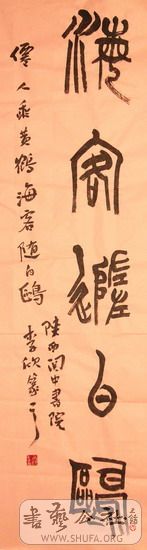 海客隨白鷗
僊人乘黄鶴海客随白鷗
陕西関中書院
李欣篆
書藝公社
WWW.SHUFA.ORG